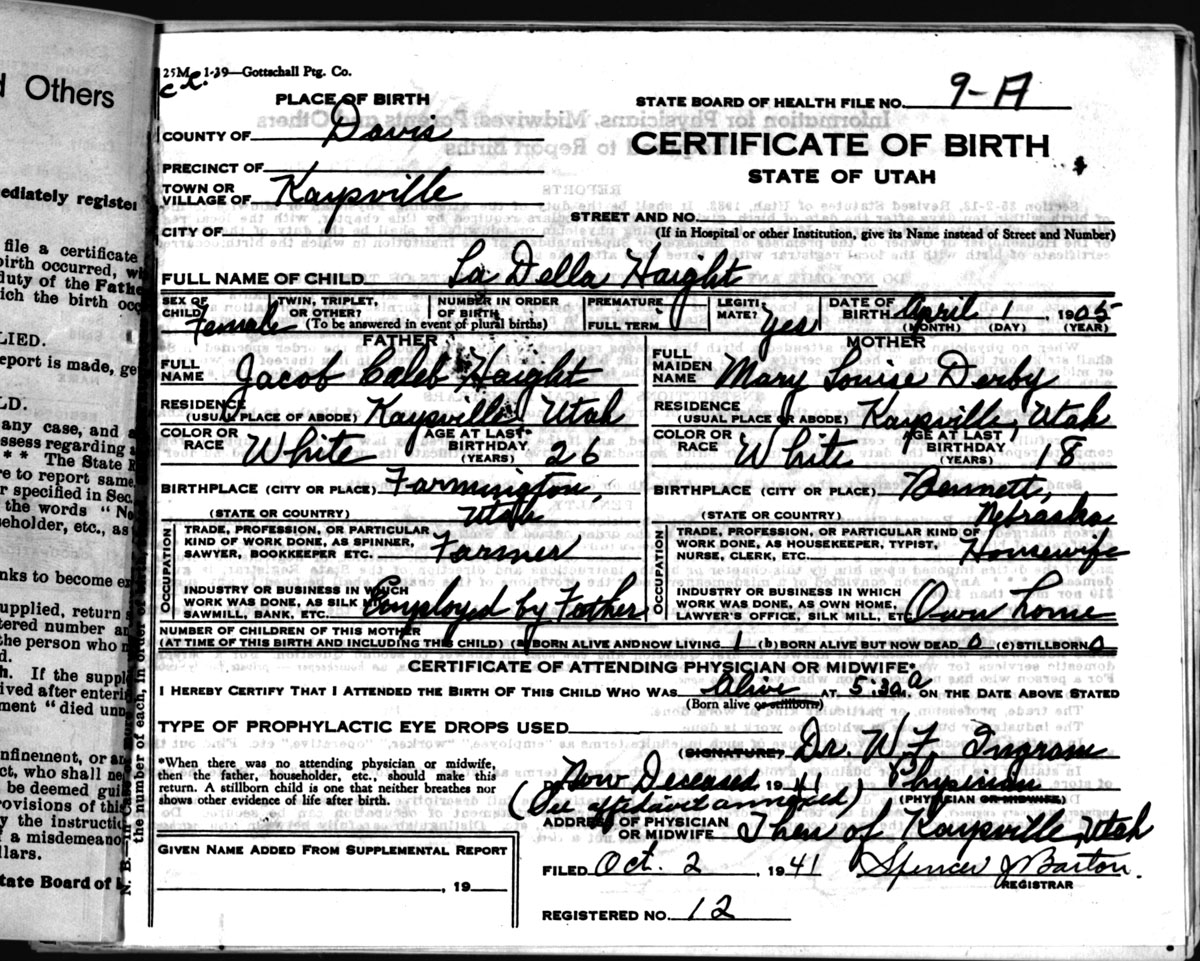 d Others
ediately register
file a certificate
birth occurred,
duty of the Fathe
ich the birth occ
LIED.
eport is made, ge
LD.
any case, and
ssess regarding
* * The State
re to report same
r specified in Sec.
the words "No
seholder, etc., as
nks to become
upplied, return
tered number an
the person who
d.
h. If the suppl
ived after enterin
ment "died unn
nfinement, or
ct, who shall ne
be deemed gui
rovisions of this
y the instructio
f a misdemeanor
llars.
tate Board of
the number of each, in order of
25M 1-39—Gottschall Ptg. Co.
PLACE OF BIRTH
STATE BOARD OF HEALTH FILE NO. 9-A
COUNTY OF Davis
CERTIFICATE OF BIRTH
STATE OF UTAH
PRECINCT OF
TOWN OR VILLAGE OF Kaysville
STREET AND NO.
CITY OF
(If in Hospital or other Institution, give its Name instead of Street and Number)
FULL NAME OF CHILD La Della Haight
SEX OF CHILD Female
TWIN, TRIPLET, OR OTHER?
NUMBER IN ORDER OF BIRTH
(To be answered in event of plural births)
PREMATURE
FULL TERM
LEGITI-MATE? Yes
DATE OF BIRTH April 1 1905
(MONTH) (DAY) (YEAR)
FATHER
FULL NAME Jacob Caleb Haight
RESIDENCE (USUAL PLACE OF ABODE) Kaysville, Utah
COLOR OR RACE White AGE AT LAST BIRTHDAY (YEARS) 26
BIRTHPLACE (CITY OR PLACE) Farmington,
(STATE OR COUNTRY) Utah
OCCUPATION
TRADE, PROFESSION, OR PARTICULAR
KIND OF WORK DONE, AS SPINNER,
SAWYER, BOOKKEEPER ETC. Farmer
INDUSTRY OR BUSINESS IN WHICH
WORK WAS DONE, AS SILK
SAWMILL, BANK, ETC. Employed by Father
MOTHER
FULL MAIDEN NAME Mary Louise Derby
RESIDENCE (USUAL PLACE OR ABODE) Kaysville, Utah
COLOR OR RACE White AGE AT LAST BIRTHDAY (YEARS) 18
BIRTHPLACE (CITY OR PLACE) Bennett,
(STATE OR COUNTRY) Nebraska
OCCUPATION
TRADE, PROFESSION, OR PARTICULAR KIND OF
WORK DONE, AS HOUSEKEEPER, TYPIST,
NURSE, CLERK, ETC. Housewife
INDUSTRY OR BUSINESS IN WHICH
WORK WAS DONE, AS OWN HOME,
LAWYER'S OFFICE, SILK MILL, ETC Own home
NUMBER OF CHILDREN OF THIS MOTHER
(AT TIME OF THIS BIRTH AND INCLUDING THIS CHILD) (a) BORN ALIVE AND NOW LIVING 1 (b) BORN ALIVE BUT NOW DEAD 0 (c) STILLBORN 0
CERTIFICATE OF ATTENDING PHYSICIAN OR MIDWIFE*
I HEREBY CERTIFY THAT I ATTENDED THE BIRTH OF THIS CHILD WHO WAS Alive AT 5:30 a M. ON THE DATE ABOVE STATED
(Born alive or stillborn)
TYPE OF PROPHYLACTIC EYE DROPS USED
(SIGNATURE) Dr. W. F. Ingram
*When there was no attending physician or midwife,
then the father, householder, etc., should make this
return. A stillborn child is one that neither breathes nor
shows other evidence of life after birth.
Now Deceased 1941 Physician
(PHYSICIAN OR MIDWIFE)
(See affidavit annexed)
ADDRESS OF PHYSICIAN OR MIDWIFE Then of Kaysville, Utah
GIVEN NAME ADDED FROM SUPPLEMENTAL REPORT
, 19
FILED Oct. 2, 1941 Spencer J Barton.
REGISTRAR
REGISTERED NO. 12